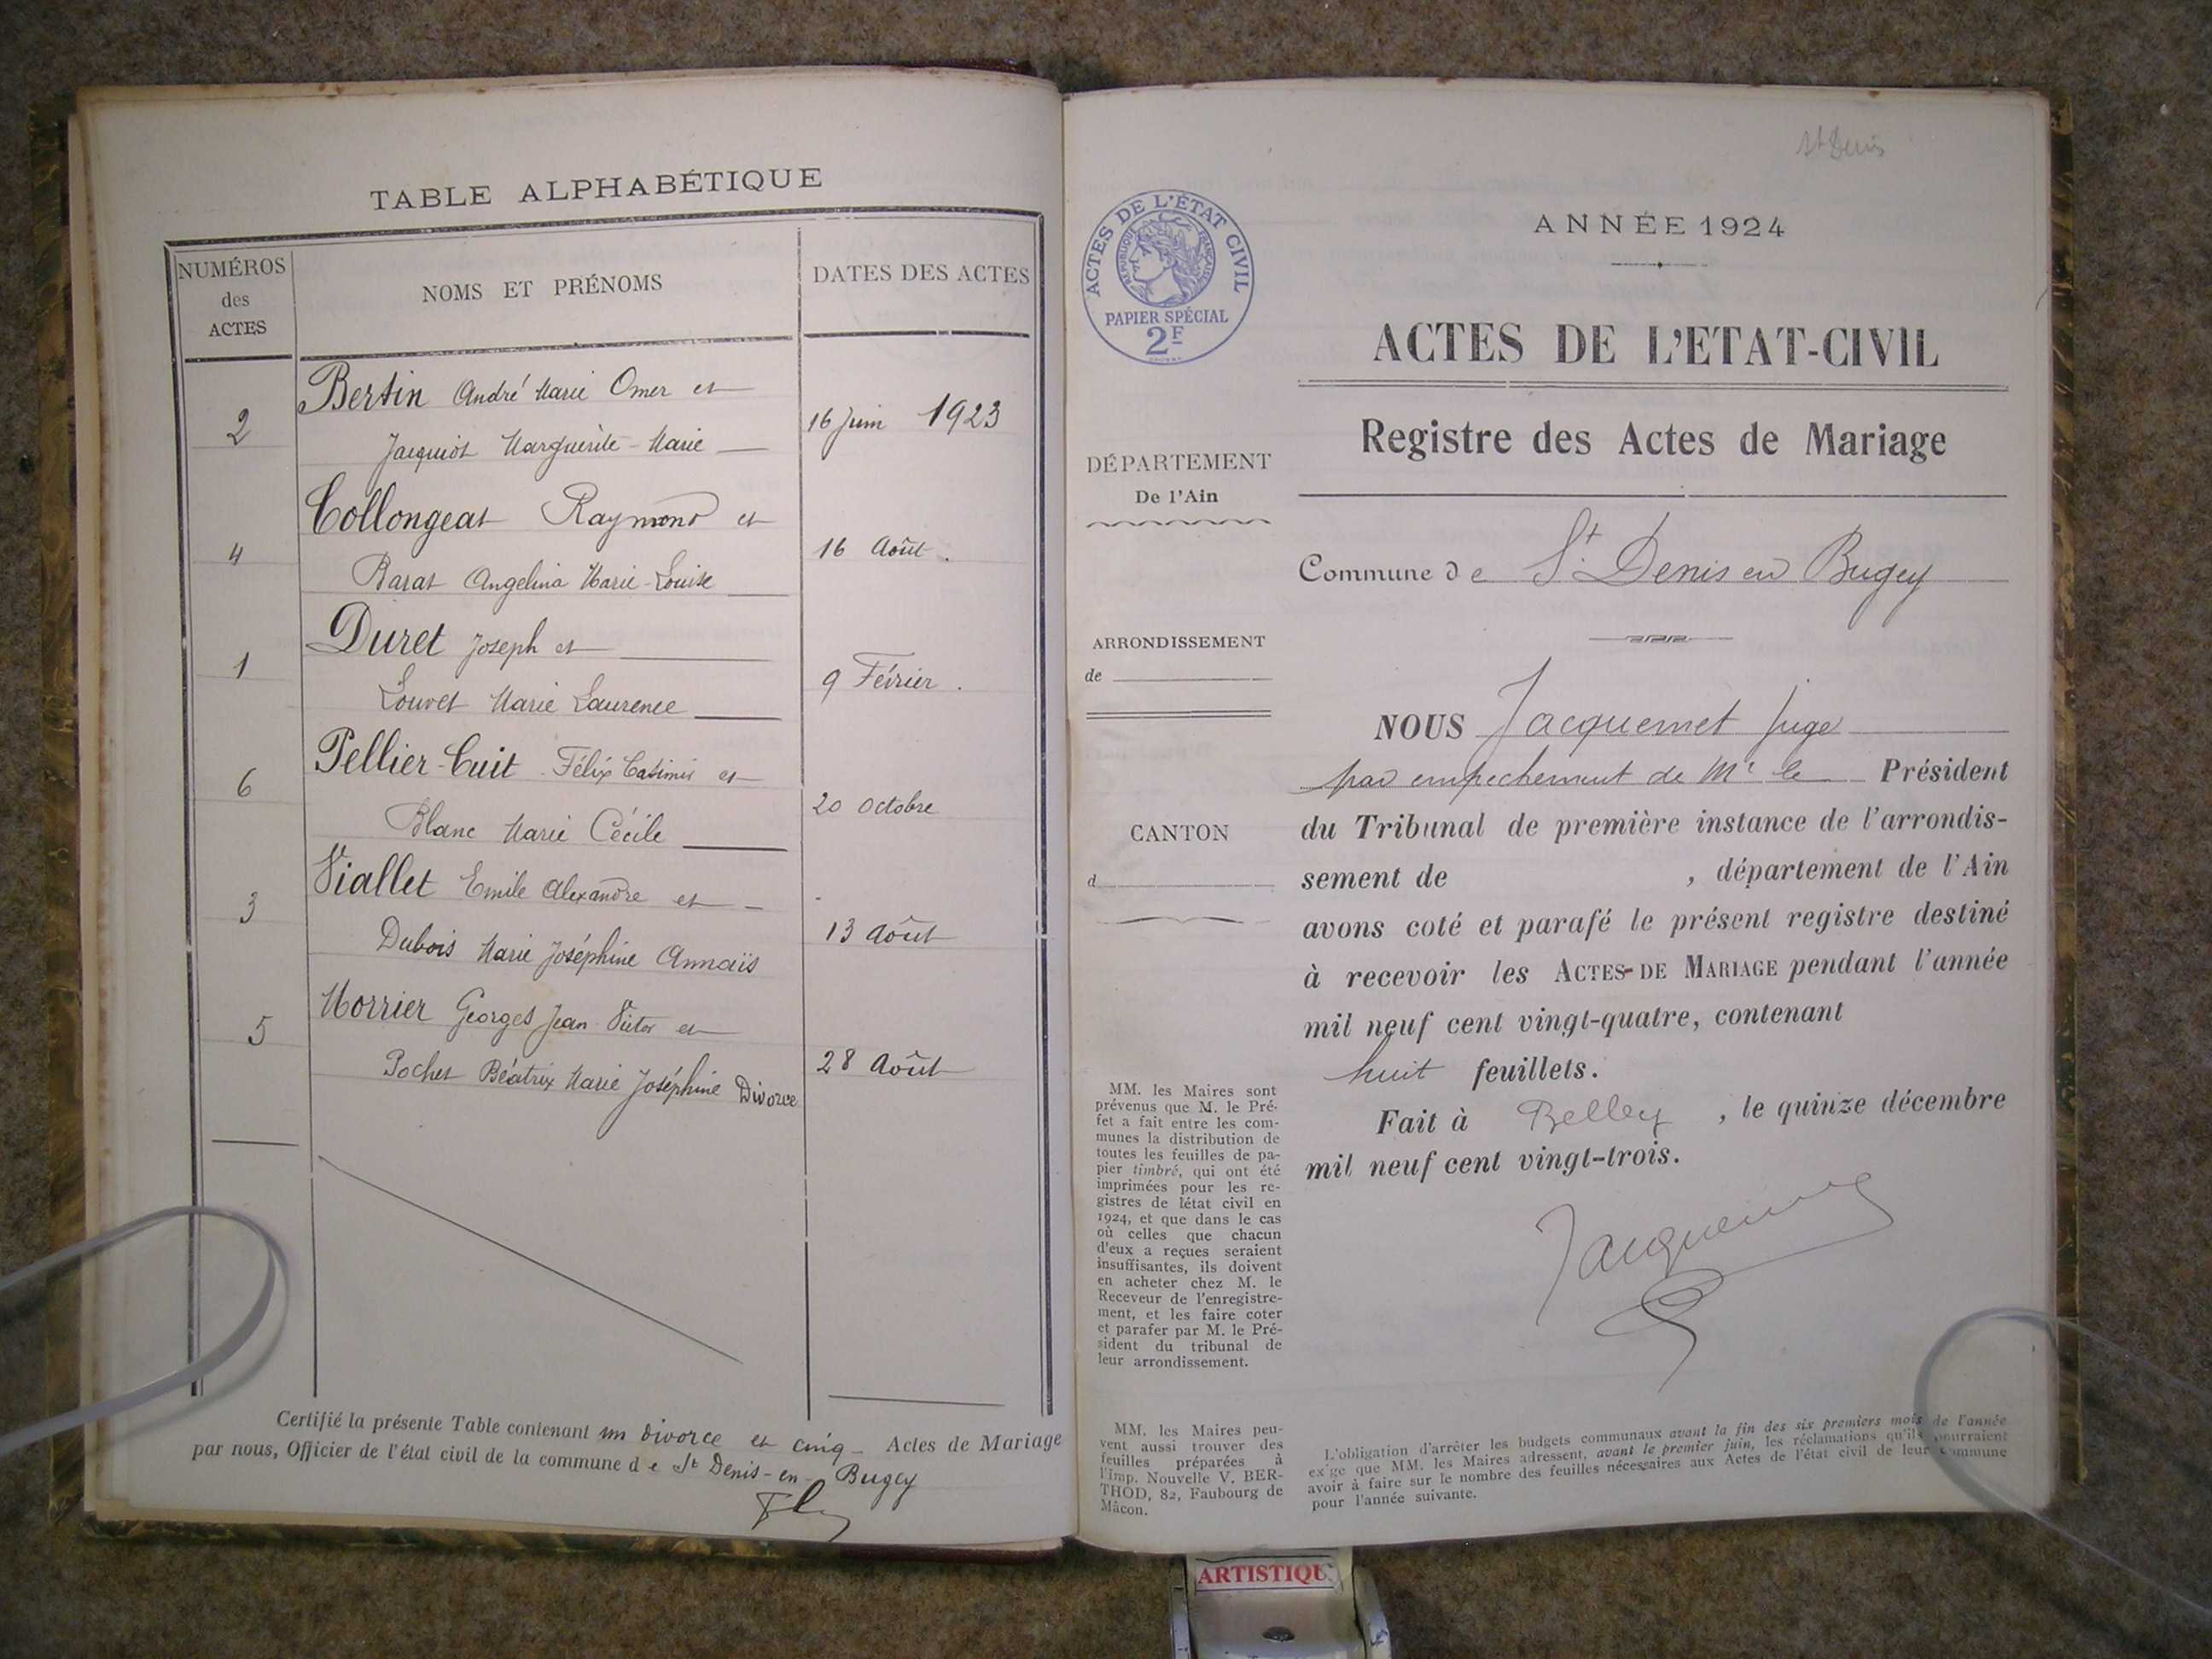 TABLE ALPHABÉTIQUE
NUMÉROS
des
ACTES
NOMS ET PRÉNOMS
DATES DES ACTES
Bertin André Marie Omer et
2
16 Juin 1923
Jacquiot Marguerite-Marie
Collongeat Raymond et
4
16 Août.
Barat Angelina Marie-Louise
Duret Joseph et
1
9 Février.
Louvet Marie Laurence
Pellier-Cuit Félix Casimir et
6
20 Octobre
Blanc Marie Cécile
Viallet Emile Alexandre et
3
13 Août
Dubois Marie Joséphine Annaïs
Morrier Georges Jean Victor et
5
28 Août
Pochet Béatrix Marie Joséphine Divorce
Certifié la présente Table contenant un divorce et cinq Actes de Mariage
par nous, Officier de l'état civil de la commune de St Denis-en-Bugey
St Denis
ACTES DE L'ÉTAT CIVIL
RÉPUBLIQUE FRANÇAISE
PAPIER SPÉCIAL
2F
DÉPARTEMENT
De l'Ain
ARRONDISSEMENT
de
CANTON
d
MM. les Maires sont
prévenus que M. le Pré-
fet a fait entre les com-
munes la distribution de
toutes les feuilles de pa-
pier timbré, qui ont été
imprimées pour les re-
gistres de létat civil en
1924, et que dans le cas
où celles que chacun
d'eux a reçues seraient
insuffisantes, ils doivent
en acheter chez M. le
Receveur de l'enregistre-
ment, et les faire coter
et parafer par M. le Pré-
sident du tribunal de
leur arrondissement.
MM. les Maires peu-
vent aussi trouver des
feuilles préparées à
l'Imp. Nouvelle V. BER-
THOD, 82, Faubourg de
Mâcon.
ANNÉE 1924
ACTES DE L'ETAT-CIVIL
Registre des Actes de Mariage
Commune de St. Denis en Bugey
NOUS Jacquemet juge
par empechement de Mr le Président
du Tribunal de première instance de l'arrondis-
sement de , département de l'Ain
avons coté et parafé le présent registre destiné
à recevoir les ACTES-DE MARIAGE pendant l'année
mil neuf cent vingt-quatre, contenant
huit feuillets.
Fait à Belley, le quinze décembre
mil neuf cent vingt-trois.
Jacquemet
L'obligation d'arrêter les budgets communaux avant la fin des six premiers mois de l'année
exige que MM. les Maires adressent, avant le premier juin, les réclamations qu'ils pourraient
avoir à faire sur le nombre des feuilles nécessaires aux Actes de l'état civil de leur commune
pour l'année suivante.
ARTISTIQU